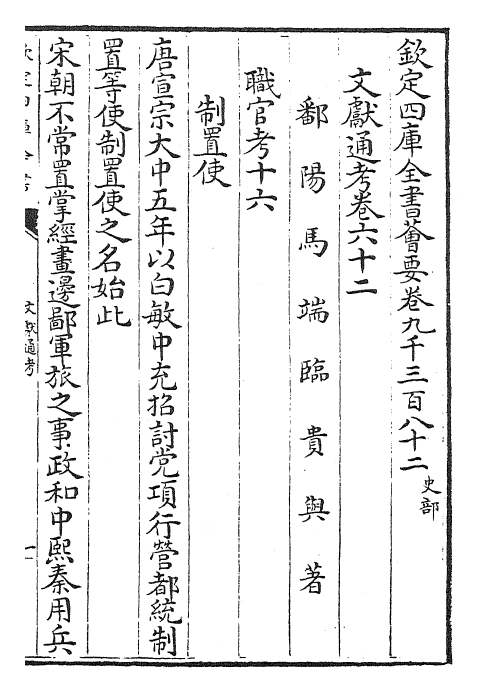 欽定四庫全書薈要卷九千三百八十二 史部
文獻通考卷六十二
鄱陽馬端臨貴與著
職官考十六
制置使
唐宣宗大中五年以白敏中充招討党項行營都統制
置等使制置使之名始此
宋朝不常置掌經畫邊鄙軍旅之事政和中熙秦用兵
文獻通考
一